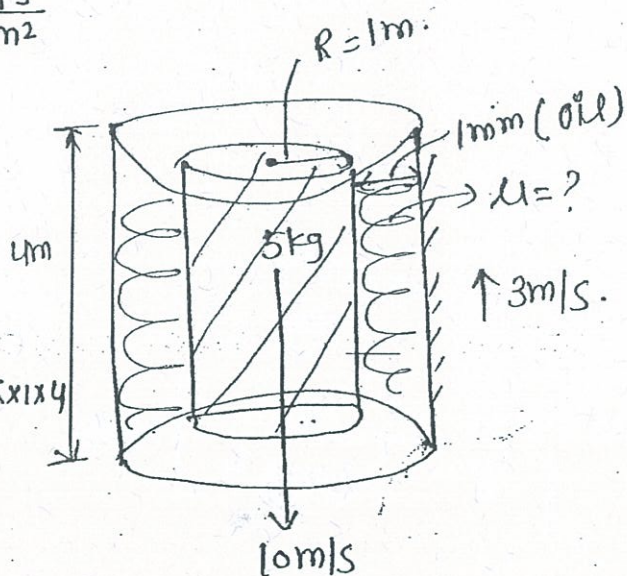 m²
R = 1m.
1mm (Oil)
μ = ?
4m
5kg
↑ 3m/s.
x1x4
10m/s